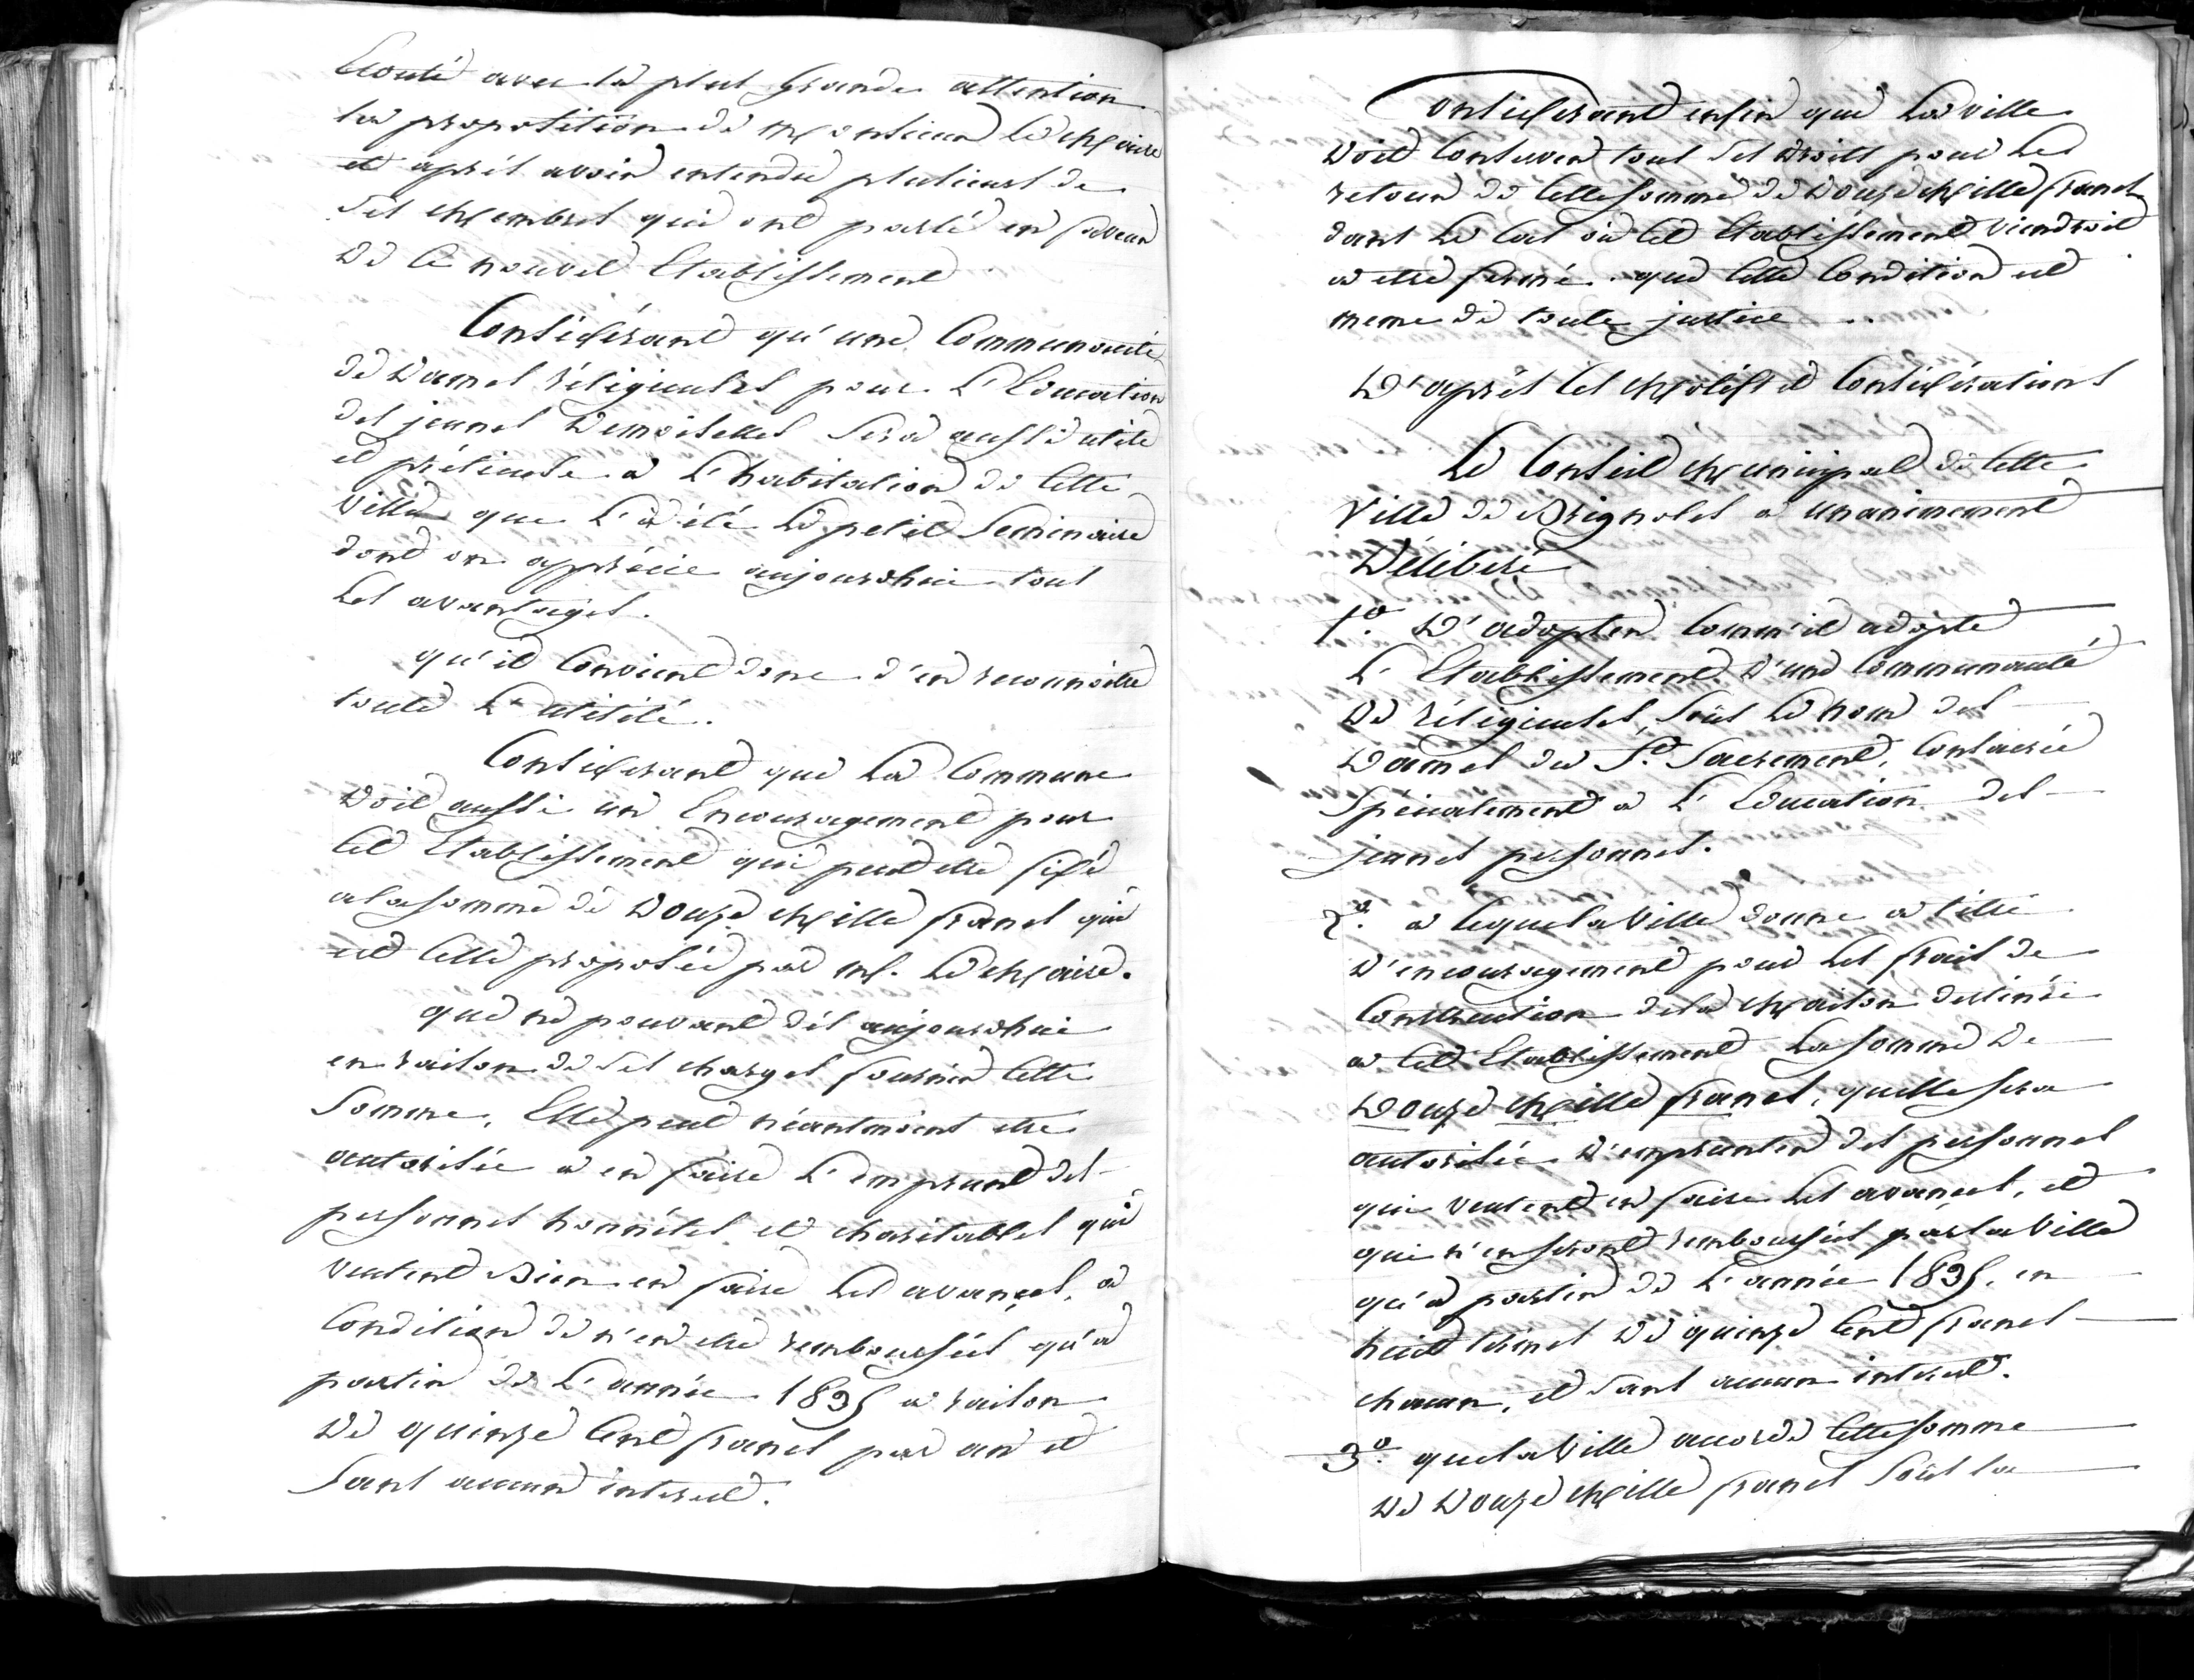 Ecouté avec la plus Grande attention
la proposition de Monsieur Le Maire
et aprés avoir entendu plusieurs de
Ses Membres qui ont parlé en faveur
De Ce nouvel Etablissement
Considérant qu'une Communauté
de Dames réligieuses pour L'Education
des jeunes Demoiselles Sera aussi utile
et prétieuse a L'habitation de Cette
Ville que L'a été Le petit Seminaire
dont on apprécie aujourdhui tous
Les avantages.
qu'il Convient donc d'en reconnoitre
toute L'utilité.
Considerant que La Commune
Doit aussi un Encouragement pour
Cet Etablissement qui peut etre fixé
a la somme de Douze Mille francs qui
est Celle proposée par M. Le Maire.
que ne pouvant dés aujourdhui
en raison de Ses charges fournir Cette
Somme, Elle peut néantmoins etre
autorisée a en faire L'emprunt des
personnes honnétes et charitables qui
veulent Bien en faire Les avances, a
Condition de n'en etre remboursées qu'a
partir de L'année 1835 a raison
De quinze Cent francs par an et
Sans aucun interest.
Considerant enfin que La Ville
Doit Conserver tous Ses Droits pour Le
retour de Cette Somme de Douze Mille francs
dans Le Cas où Cet Etablissement viendroit
a etre fermé. que Cette Condition est
meme de toute justice ..
D'aprés Ces Motifs et Considérations
Le Conseil Municipal de Cette
Ville de Brignoles a unanimement
Délibéré
1°. D'adopter Comm'il adopte
L'Etablissement D'une Communauté
De réligieuses, Sous Le nom des
Dames du St. Sacrement, Consacrée
Spécialement a L'Education des
jeunes personnes.
2°. a Ceque la Ville donne a titre
D'encouragement pour Les frais de
Construction de la Maison destinée
a Cet Etablissement La Somme De
Douze Mille francs, quelle sera
autorisée D'emprunter des personnes
qui veulent en faire Les avances, et
qui n'en seront remboursées par la Ville
qu'a partir de L'année 1835, en
huit termes De quinze Cent francs
chacun, et Sans aucun interest.
3°. que la Ville accorde Cette Somme
De Douze Mille francs Sous la